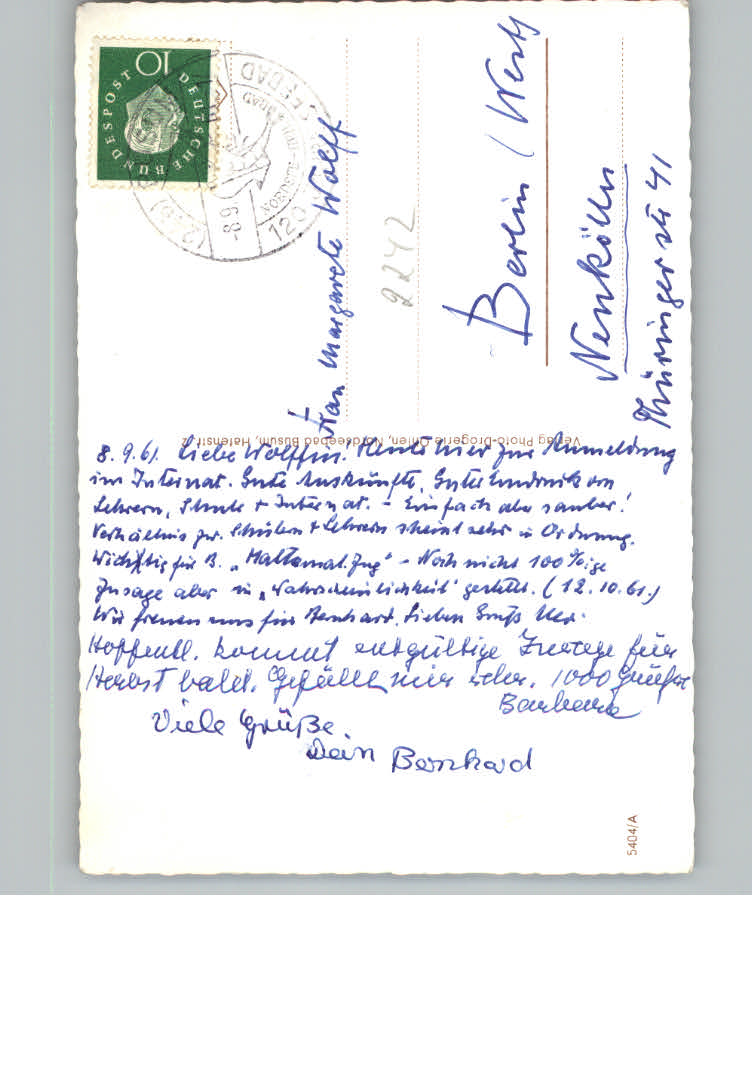 8.9.61. Liebe Wolffin. Heute hier zur Anmeldung
im Internat. Gute Auskünfte, Guter Eindruck von
Lehrern, Schule + Internat. - Einfach aber sauber!
Verhältnis zw. Schülern + Lehrern scheint sehr in Ordnung.
Wichtig für B. „Mathemat. Zug" - Noch nicht 100%ige
Zusage aber in „Wahrscheinlichkeit" gestellt. (12.10.61.)
Wir freuen uns für Bernhard. Lieben Gruß
Hoffentl. kommt entgültige Zusage für
Herbst bald. Gefällt mir sehr. 1000 Grüße
Barbara
Viele Grüße.
Dein Bernhard
Frau Margarete Wolff
Berlin (West)
Neukölln
Thüringer str 41
2242
Verlag Photo-Drogerie Nordseebad Büsum, Hafenstr.
5404/A
10
DEUTSCHE
BUNDESPOST
-8.9